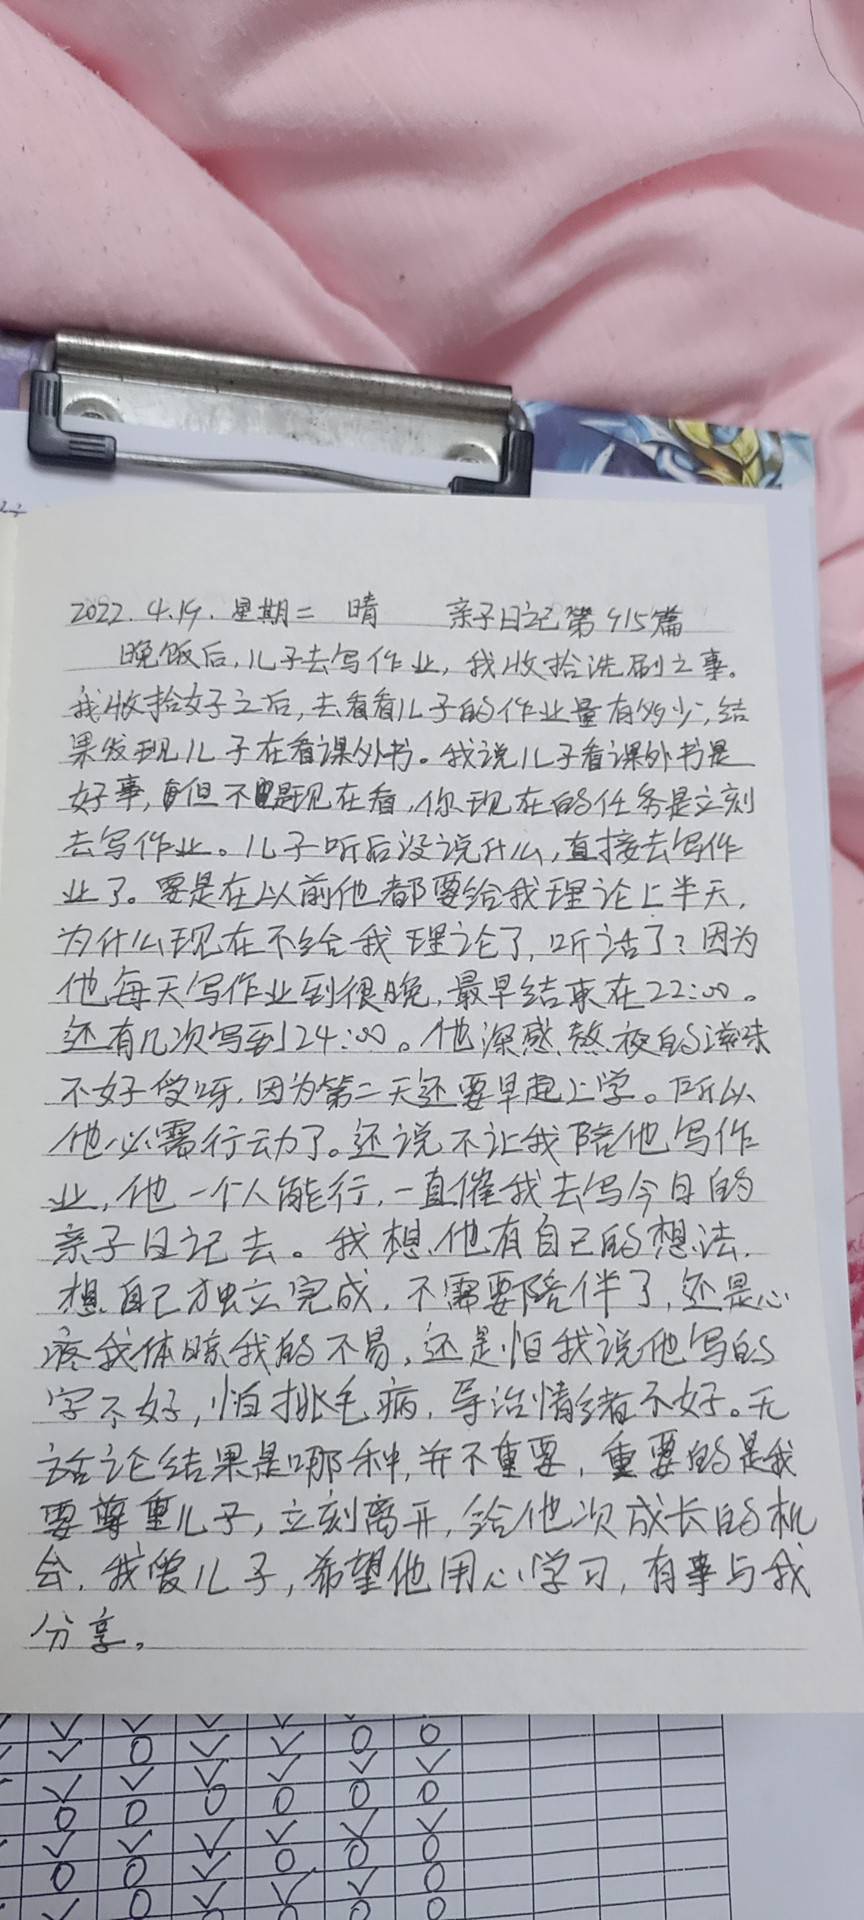 2022.4.19.星期二 晴 亲子日记第915篇
晚饭后,儿子去写作业,我收拾洗刷之事。
我收拾好子之后,去看看儿子的作业量有多少,结
果发现儿子在看课外书。我说儿子看课外书是
好事,但不是现在看,你现在的任务是立刻
去写作业。儿子听后没说什么,直接去写作
业了。要是在以前他都要给我理论上半天,
为什么现在不给我理论了,听话了?因为
他每天写作业到很晚,最早结束在22:00。
还有几次写到24:00。他深感熬夜的滋味
不好受呀,因为第二天还要早起上学。所以
他必需行动了。还说不让我陪他写作
业,他一个人能行,一直催我去写今日的
亲子日记去。我想他有自己的想法,
想自己独立完成,不需要陪伴了,还是心
疼我体晾我的不易,还是怕我说他写的
字不好,怕挑毛病,导治情绪不好。无
话论结果是哪种,并不重要,重要的是我
要尊重儿子,立刻离开,给他次成长的机
会,我爱儿子,希望他用心学习,有事与我
分享。